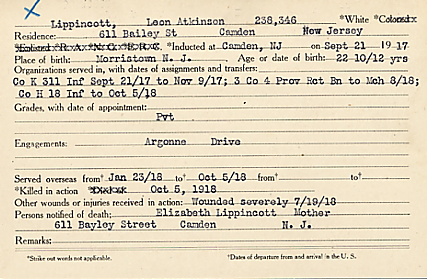 Lippincott, Leon Atkinson 238,346 *White *Colored
Residence: 611 Bailey St Camden New Jersey
*Enlisted R. A. *N. G. *E. R. C. *Inducted at Camden, NJ on Sept 21 1917
Place of birth: Morristown N. J. Age or date of birth: 22 10/12 yrs
Organizations served in, with dates of assignments and transfers:
Co K 311 Inf Sept 21/17 to Nov 9/17; 3 Co 4 Prov Rct Bn to Mch 8/18;
Co H 18 Inf to Oct 5/18
Grades, with date of appointment:
Pvt
Engagements: Argonne Drive
Served overseas from† Jan 23/18 to† Oct 5/18 from† to†
*Killed in action Oct 5, 1918
Other wounds or injuries received in action: Wounded severely 7/19/18
Persons notified of death: Elizabeth Lippincott Mother
611 Bayley Street Camden N. J.
Remarks:
*Strike out words not applicable. †Dates of departure from and arrival in the U. S.